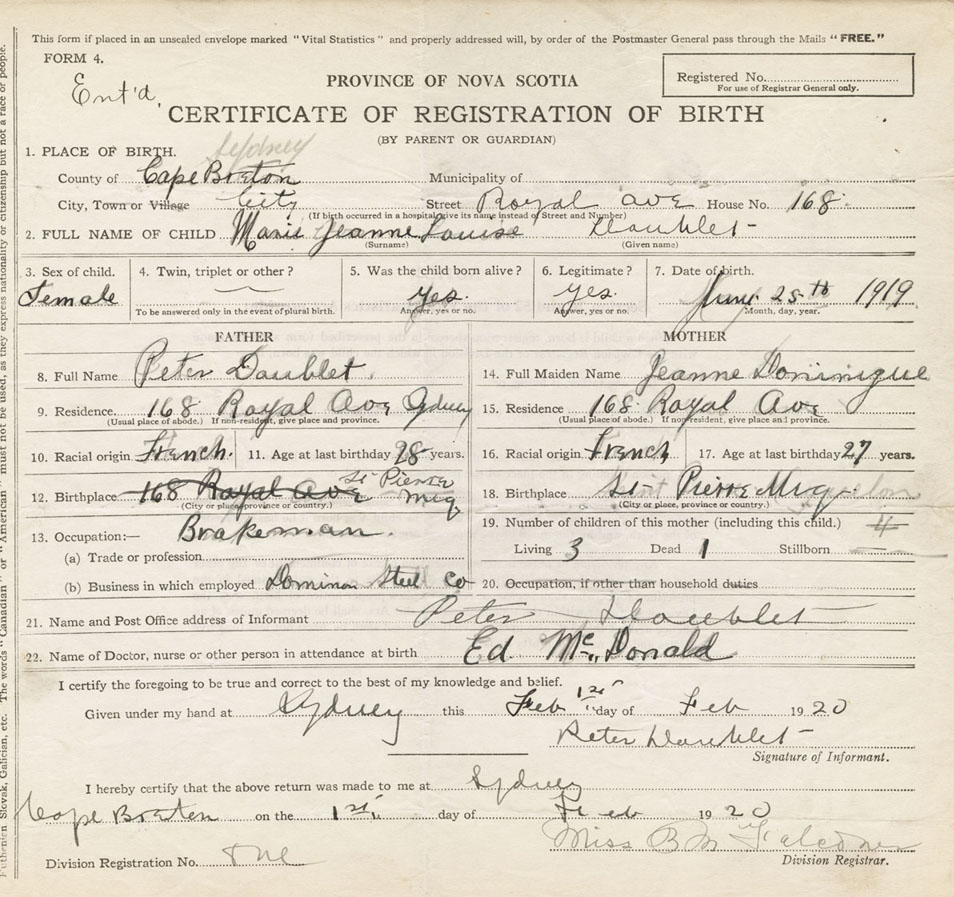 This form if placed in an unsealed envelope marked "Vital Statistics" and properly addressed will, by order of the Postmaster General pass through the Mails "FREE."
FORM 4.
Ent'd,
PROVINCE OF NOVA SCOTIA
Registered No.
For use of Registrar General only.
CERTIFICATE OF REGISTRATION OF BIRTH
(BY PARENT OR GUARDIAN)
1. PLACE OF BIRTH. Sydney
County of Cape Breton Municipality of
City, Town or Village City Street Royal Ave House No. 168
(If birth occurred in a hospital give its name instead of Street and Number)
2. FULL NAME OF CHILD Marie Jeanne Louise Daublet
(Surname) (Given name)
3. Sex of child. 4. Twin, triplet or other? 5. Was the child born alive? 6. Legitimate? 7. Date of birth.
Female Yes. Yes. 25th 1919
To be answered only in the event of plural birth. Answer, yes or no. Answer, yes or no. Month, day, year.
FATHER MOTHER
8. Full Name Peter Daublet. 14. Full Maiden Name Jeanne Dominique
9. Residence. 168 Royal Ave Sydney 15. Residence 168 Royal Ave
(Usual place of abode.) If non-resident, give place and province. (Usual place of abode.) If non-resident, give place and province.
10. Racial origin French. 11. Age at last birthday 28 years. 16. Racial origin French 17. Age at last birthday 27 years.
12. Birthplace 168 Royal Ave St Pierre Miq 18. Birthplace St Pierre Miq
(City or place, province or country.) (City or place, province or country.)
13. Occupation:— Brakeman. 19. Number of children of this mother (including this child.) 4
(a) Trade or profession Living 3 Dead 1 Stillborn —
(b) Business in which employed Dominon Steel Co 20. Occupation, if other than household duties
21. Name and Post Office address of Informant Peter Daublet
22. Name of Doctor, nurse or other person in attendance at birth Ed McDonald
I certify the foregoing to be true and correct to the best of my knowledge and belief.
Given under my hand at Sydney this Feb 1st day of Feb 1920
Peter Daublet
Signature of Informant.
I hereby certify that the above return was made to me at Sydney
Cape Breton on the 1st day of Feb 1920
Miss B M Falconer
Division Registrar.
Division Registration No. One
The words "Canadian" or "American" must not be used, as they express nationality or citizenship but not a race or people.